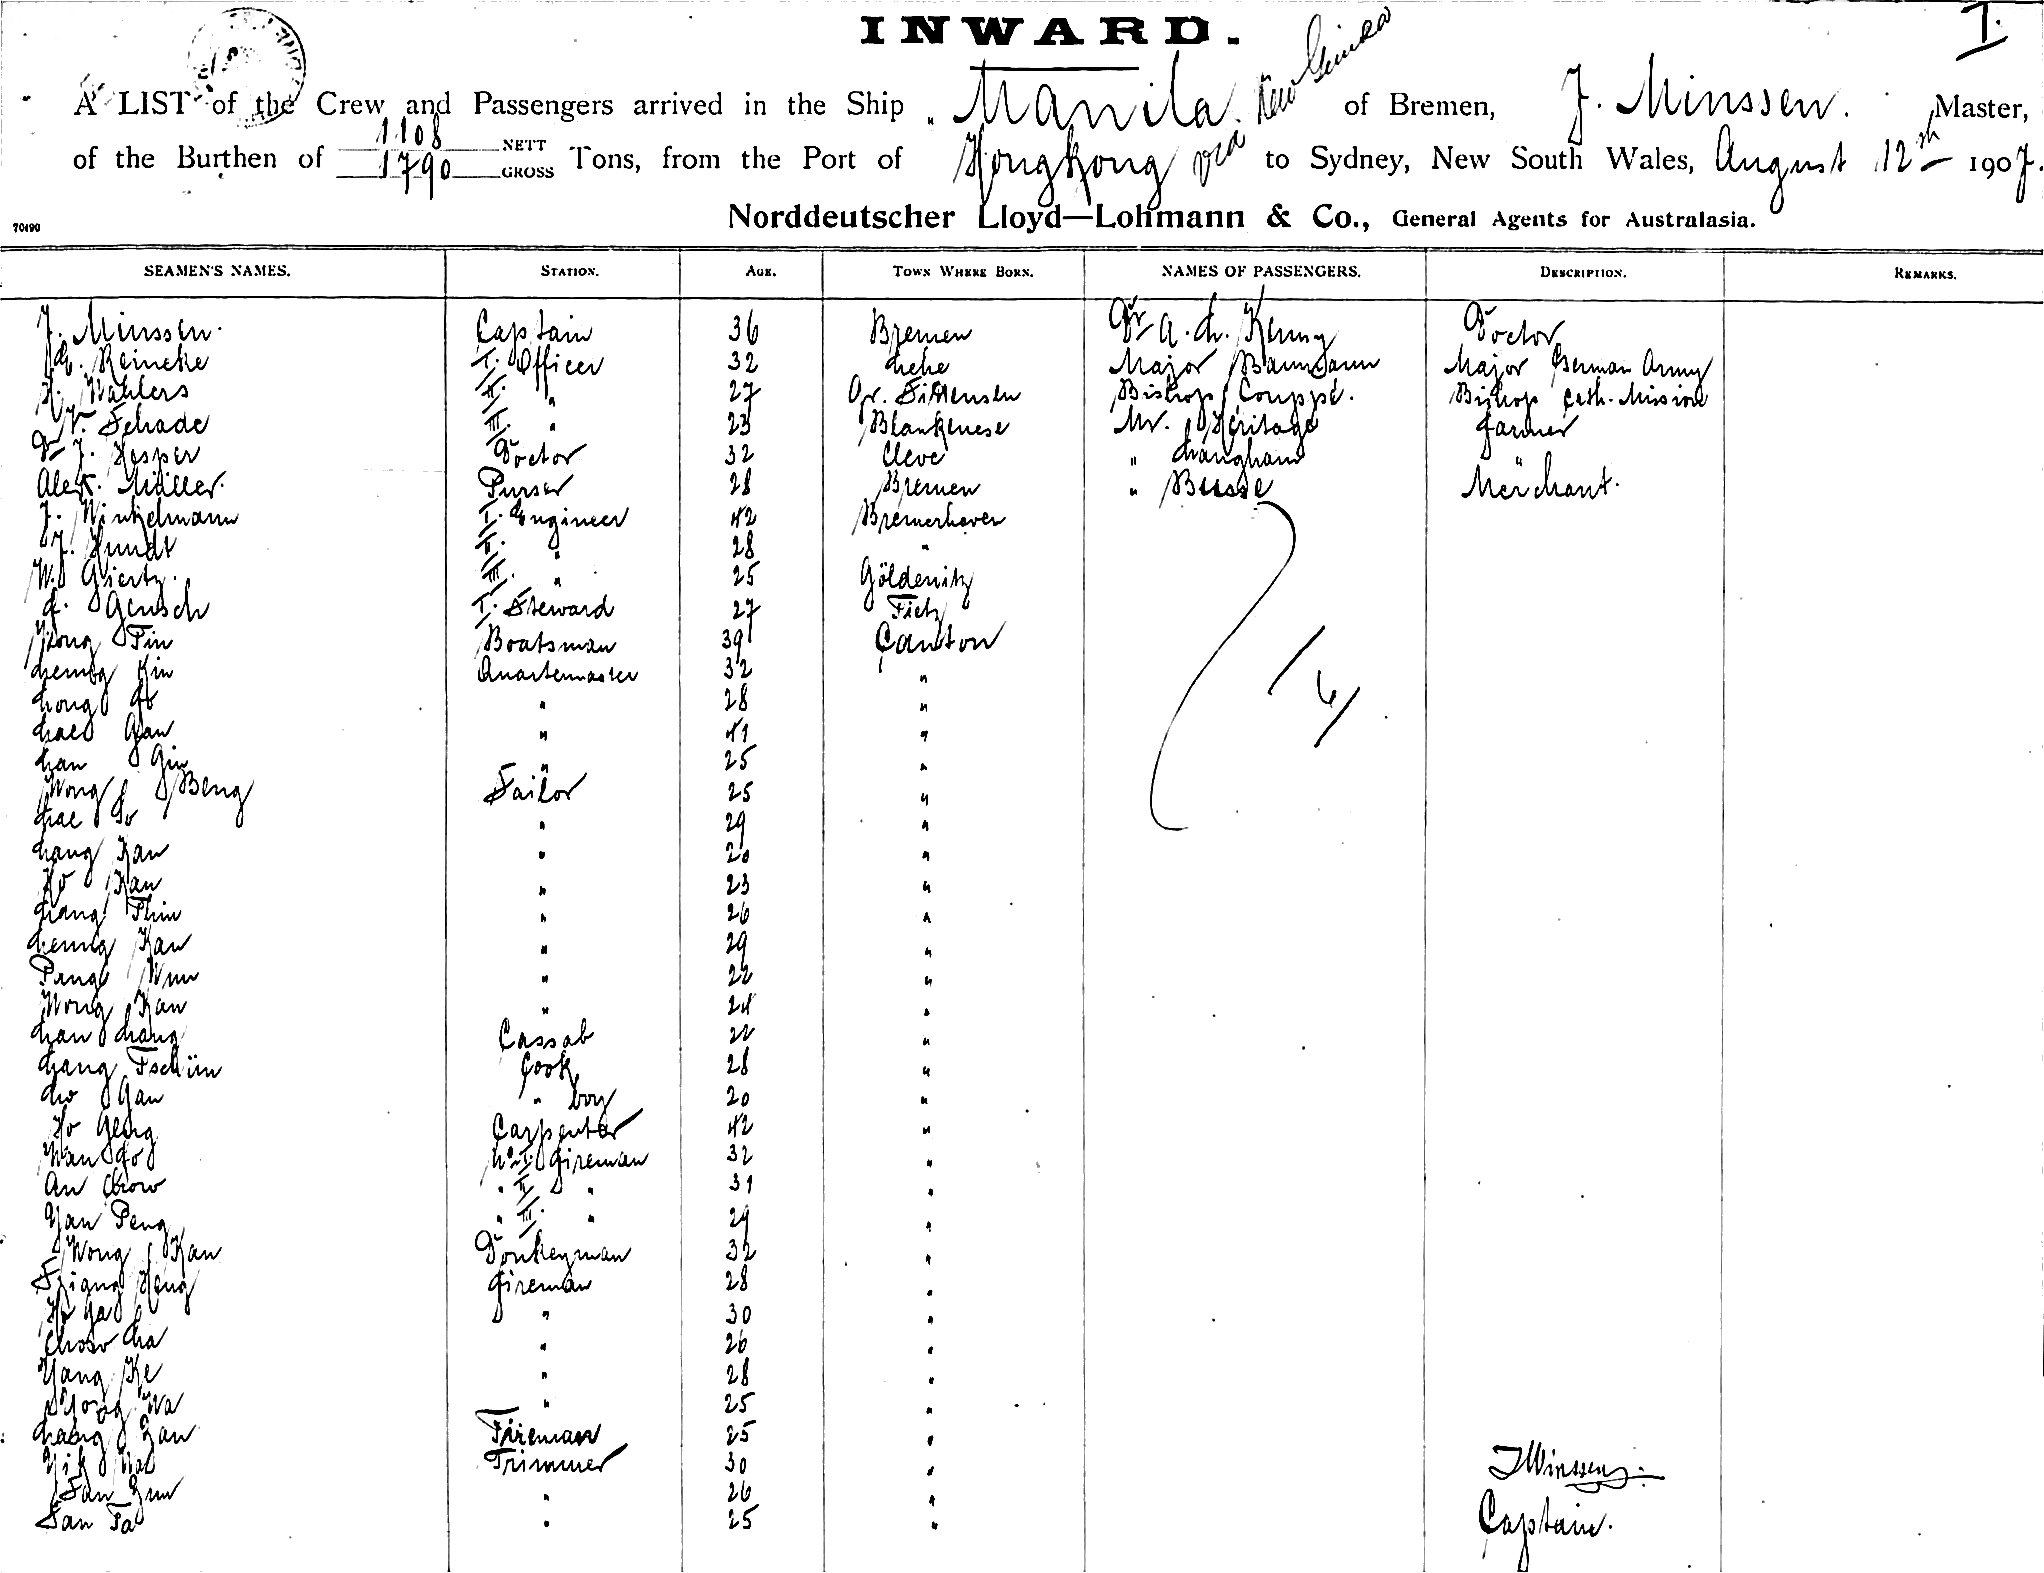 INWARD.
I.
A LIST of the Crew and Passengers arrived in the Ship "Manila. of Bremen, J. Minssen. Master,
of the Burthen of 1108 NETT 1790 GROSS Tons, from the Port of Hongkong via New Guinea to Sydney, New South Wales, August 12th 1907.
Norddeutscher Lloyd—Lohmann & Co., General Agents for Australasia.
70490
SEAMEN'S NAMES. STATION. AGE. TOWN WHERE BORN. NAMES OF PASSENGERS. DESCRIPTION. REMARKS.
J. Minssen. Captain 36 Bremen Dr A. Kenny Doctor
Reineke I. Officer 32 Lehe Major Baumann Major German Army
H. Wahlers II. " 27 Gr. Sittensen Bishop Couppé. Bishop Cath. Mission
Schade III. " 23 Blankenese Mr. Heritage Farmer
Dr J. Hesper Doctor 32 Cleve " Langham "
Alex. Müller. Purser 28 Bremen " Busse Merchant.
J. Winkelmann I. Engineer 42 Bremerhaven
J. Hundt II. " 28 "
W. Giertz. III. " 25 Göldenitz
Gensch I. Steward 27 Tietz
Wong Tin Boatsman 39 Canton
Leung Kin Quartermaster 32 "
Leong " 28 "
" 41 "
Lan Gin " 25 "
Wong Beng Sailor 25 "
" 29 "
Lang Kan " 20 "
Ho Kan " 23 "
Lang Thin " 26 "
Leung Kan " 29 "
Pang Wun " 22 "
Wong Kan " 24 "
Lan Lang Cassab 22 "
Lang Tschün Cook 28 "
Lo Gan " boy 20 "
Ho Geng Carpenter 42 "
Wan No I. Fireman 32 "
An Chow " II. " 31 "
Yan Peng " III. " 29 "
Wong Kan Donkeyman 32 "
Heng Fireman 28 "
" 30 "
Chow Cha " 26 "
Yang Ke " 28 "
Wa " 25 "
Fireman 25 "
Trimmer 30 "
" 26 "
San Ta " 25 "
/ 6 /
J Minssen.
Captain.